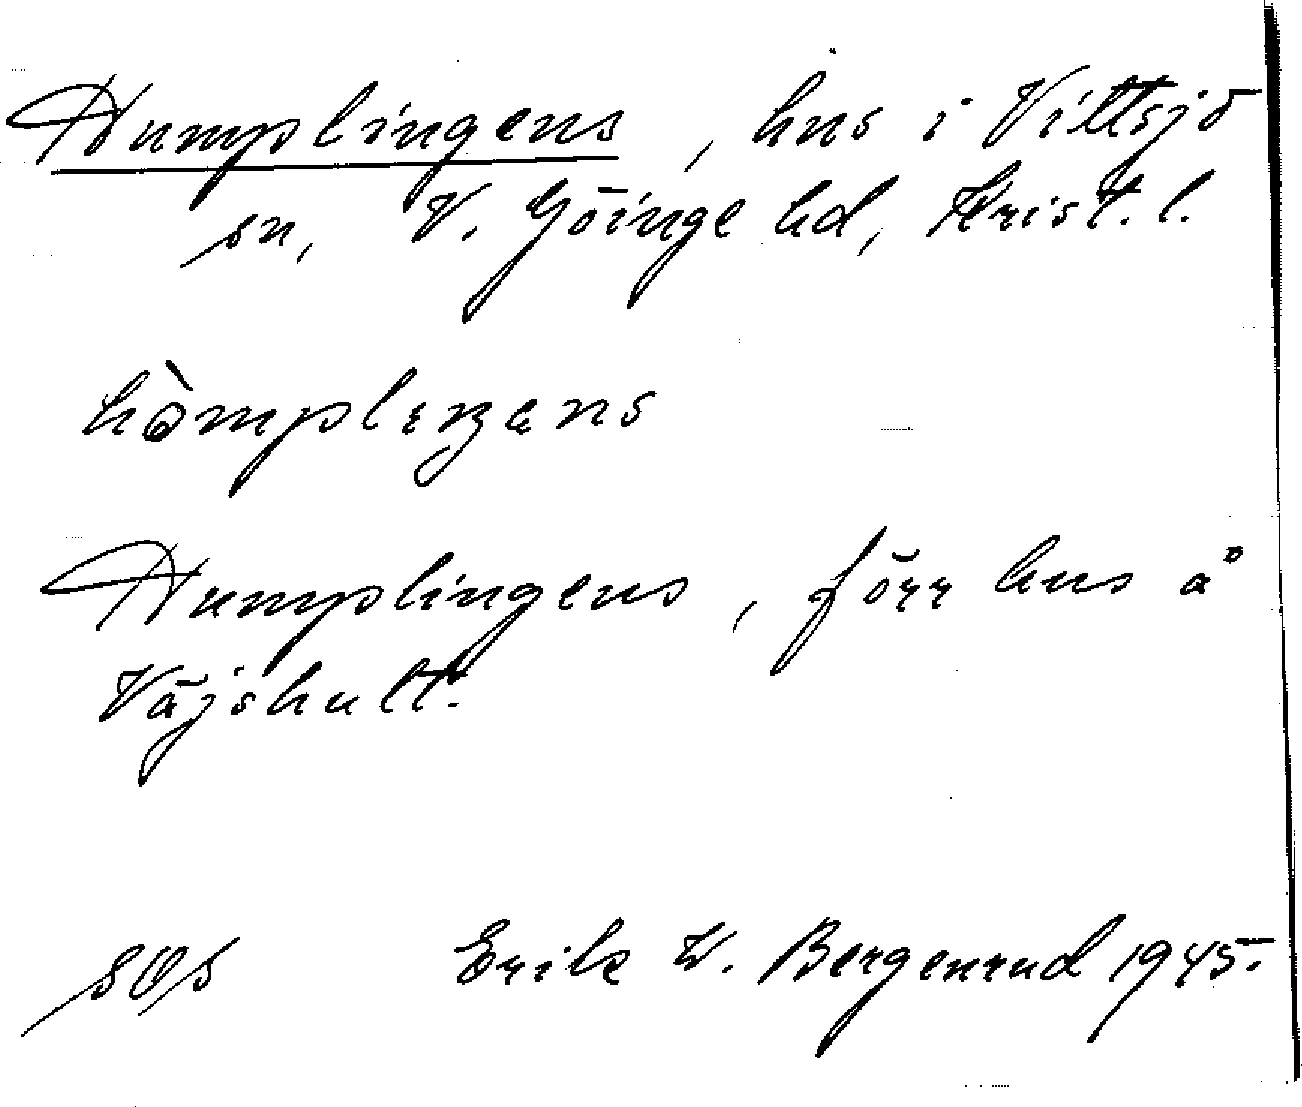 Humplingens, hus i Vittsjö
sn, V. Göinge hd, Krist. l.
hòmplıŋens
Humplingens, förr hus å
Väjshult.
sOs Erik W. Bergenrud 1945.